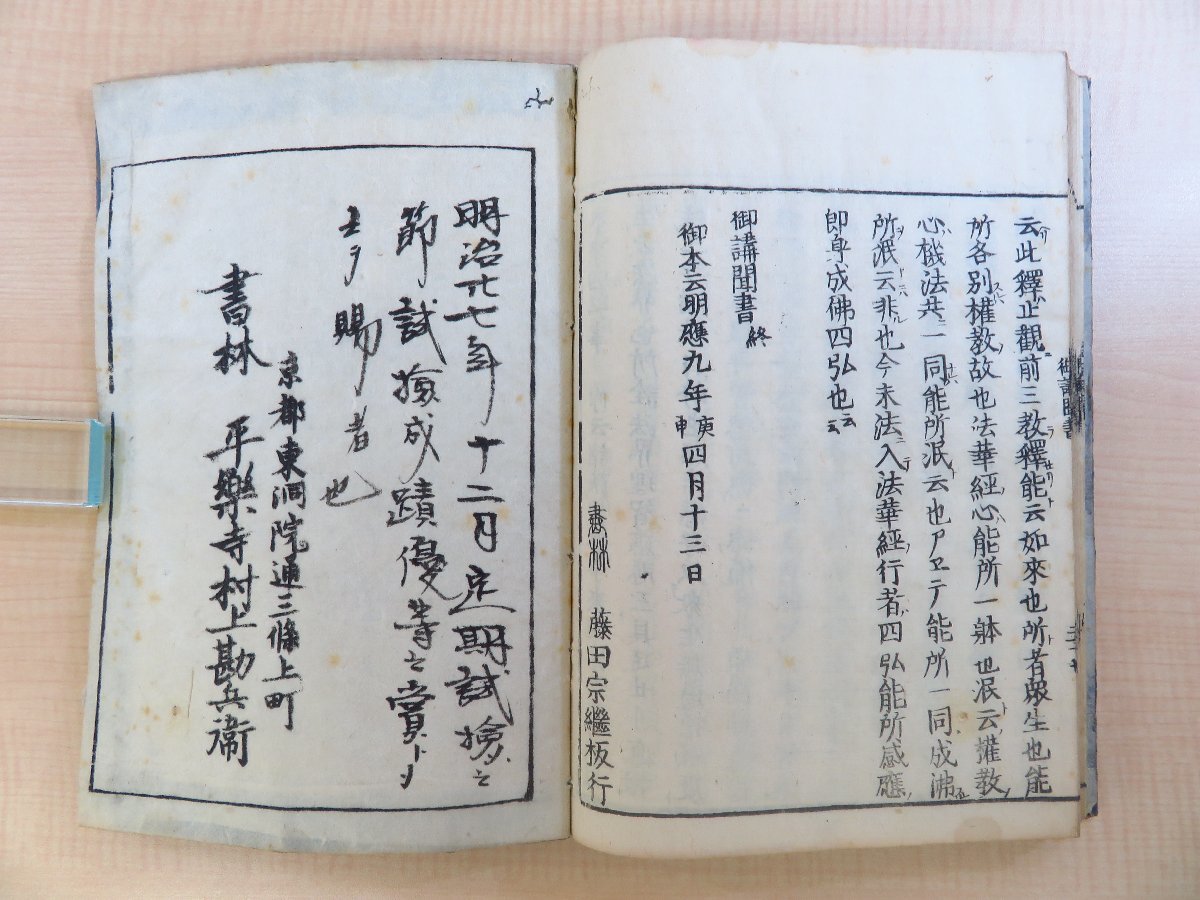 云此釋止觀前三教釋能云如來也所者眾生也能
所各別權教故也法華經心能所一躰也泯云權教
心機法共一同能所泯云也アヱテ能所一同成沸
所泯云非也今末法入法華經行者四弘能所感應
即身成佛四弘也云云
御講聞書 終
御本云明應九年庚申四月十三日
書林 藤田宗繼板行
明治廿七年十二月定期試撿之
節試撿成蹟優等之賞トメ
之ヲ賜者也
京都東洞院通三條上町
書林 平樂寺村上勘兵衞